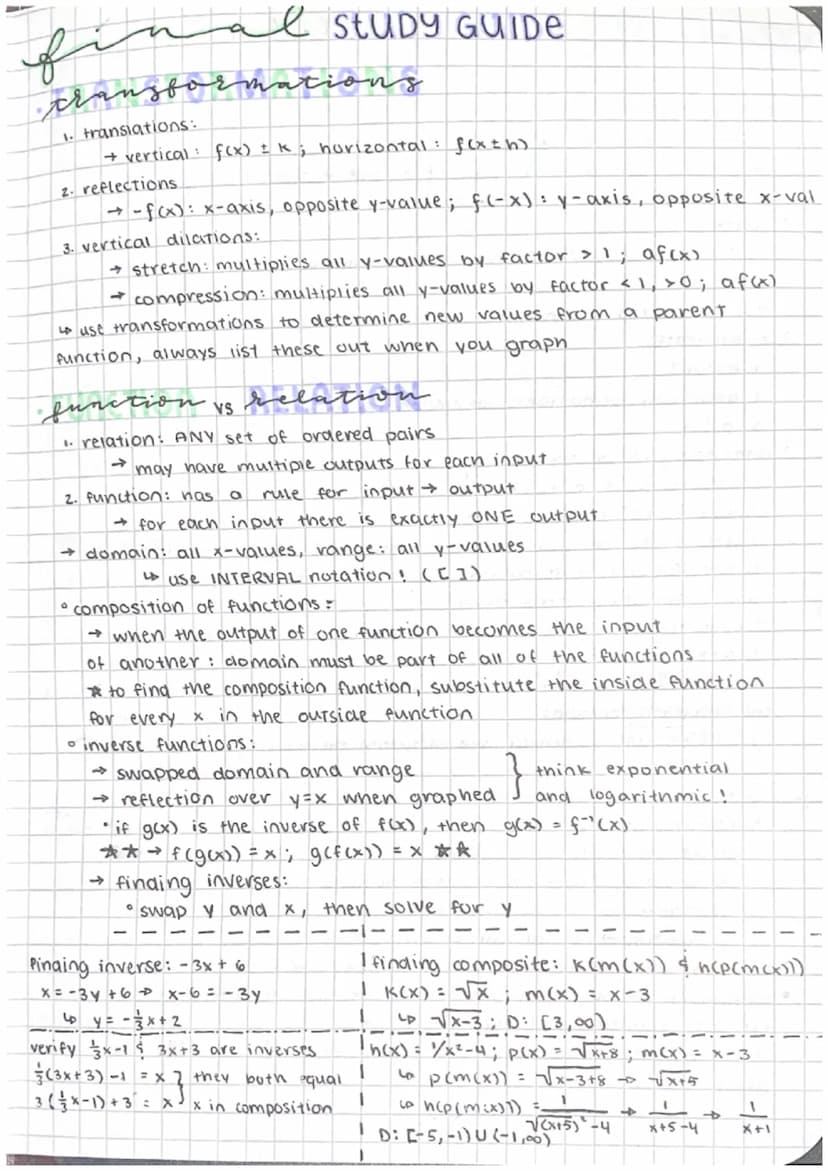 final STUDY GUIDE
• transformations
1. translations:
→ vertical: f(x) ± k; horizontal: f(x±h)
2. reflections
→ -f(x): x-axis, opposite y-value; f(-x): y-axis, opposite x-val
3. vertical dilations:
→ stretch: multiplies all y-values by factor > 1; af(x)
→ compression: multiplies all y-values by factor < 1, >0; af(x)
↳ use transformations to determine new values from a parent
function, always list these out when you graph
• function vs relation
1. relation: ANY set of ordered pairs
→ may have multiple outputs for each input
2. function: has a rule for input → output
→ for each input there is exactly ONE output
→ domain: all x-values, range: all y-values
↳ use INTERVAL notation! ( [ ] )
° composition of functions:
→ when the output of one function becomes the input
of another: domain must be part of all of the functions
★ to find the composition function, substitute the inside function
for every x in the outside function
° inverse functions:
→ swapped domain and range } think exponential
→ reflection over y=x when graphed } and logarithmic!
• if g(x) is the inverse of f(x), then g(x) = f⁻¹(x)
★★ → f(g(x)) = x; g(f(x)) = x ★★
→ finding inverses:
° swap y and x, then solve for y
finding inverse: -3x + 6
x = -3y + 6 → x-6 = -3y
↳ y = -⅓x + 2
verify ⅓x-1 & 3x+3 are inverses
⅓(3x+3) -1 = x } they both equal
3(⅓x-1) + 3 = x } x in composition
finding composite: k(m(x)) & h(p(m(x)))
k(x) = √x ; m(x) = x-3
↳ √x-3 ; D: [3,∞)
h(x) = 1/x²-4 ; p(x) = √x+8 ; m(x) = x-3
↳ p(m(x)) = √x-3+8 → √x+5
↳ h(p(m(x))) = 1/√(x+5)²-4 → 1/x+5-4 → 1/x+1
D: [-5,-1) ∪ (-1,∞)